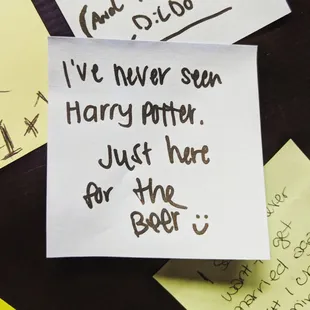 (And
DildO
I've never seen
Harry Potter.
Just here
for the
Beer :)
I
ever
want to get
married